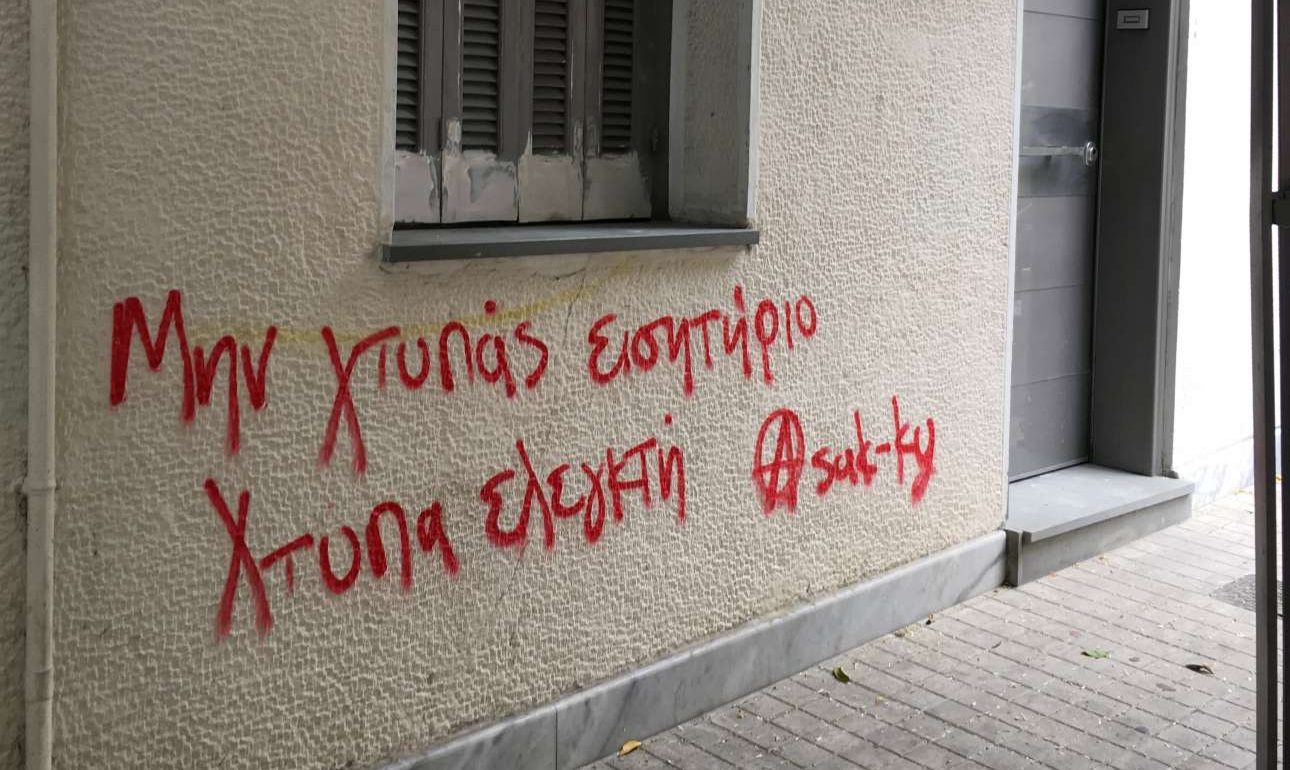 Μην χτυπάς εισητήριο
Χτύπα ελεγκτή Ⓐsak-ky